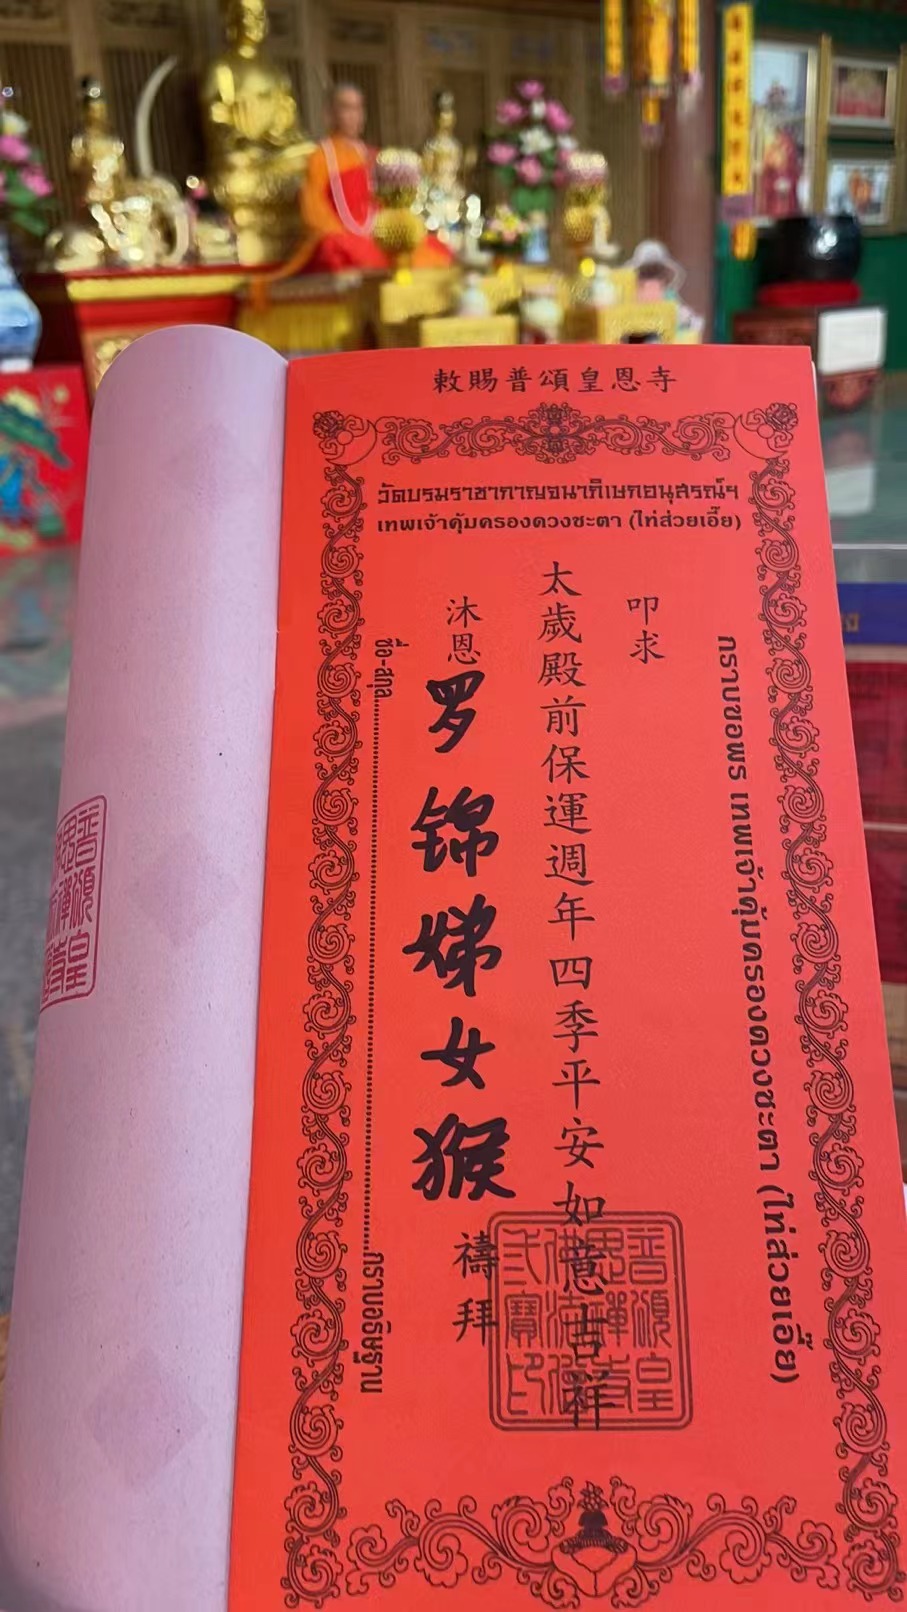 敕賜普頌皇恩寺
วัดบรมราชากาญจนาภิเษกอนุสรณ์ฯ
เทพเจ้าคุ้มครองดวงชะตา (ไท่ส่วยเอี๊ย)
กราบขอพร เทพเจ้าคุ้มครองดวงชะตา (ไท่ส่วยเอี๊ย)
叩求
太歲殿前保運週年四季平安如意吉祥
沐恩
罗锦娣女猴
禱拜
ชื่อ-สกุล
กราบอธิษฐาน